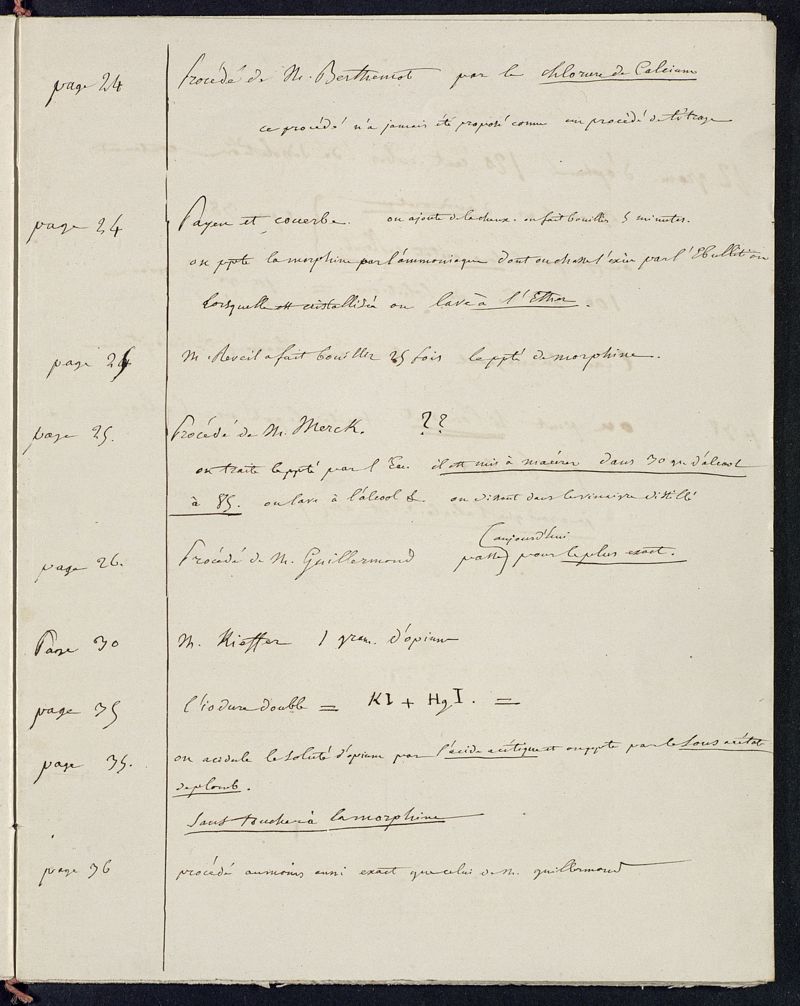 page 24 Procédé de M. Berthemot par le chlorure de Calcium
ce procédé n'a jamais été proposé comme un procédé de titrage
page 24 Payen et couerbe. on ajoute de la chaux. on fait bouillir 5 minutes.
on ppte la morphine par l'ammoniaque dont on chasse l'excès par l'Ebullition
lorsquelle est cristallisée on lave à l'Ether.
page 25 M. Reveil a fait bouillir 25 fois le ppté de morphine.
page 25. Procédé de M. Merck. ??
on traite le ppté par l'Eau il est mis à macérer dans 30 gr d'alcool
à 85. on lave à l'alcool & on dissout dans le vinaigre distillé
(aujourd'hui
page 26. Procédé de M. Guillermond passe) pour le plus exact.
Page 30 M. Kieffer 1 gram. d'opium
page 35 l'iodure double = KI + HgI. =
page 35. on acidule le soluté d'opium par l'acide acétique et on ppte par le sous acétate
de plomb.
Sans toucher à la morphine
page 36 procédé au moins aussi exact que celui de M. guillermond